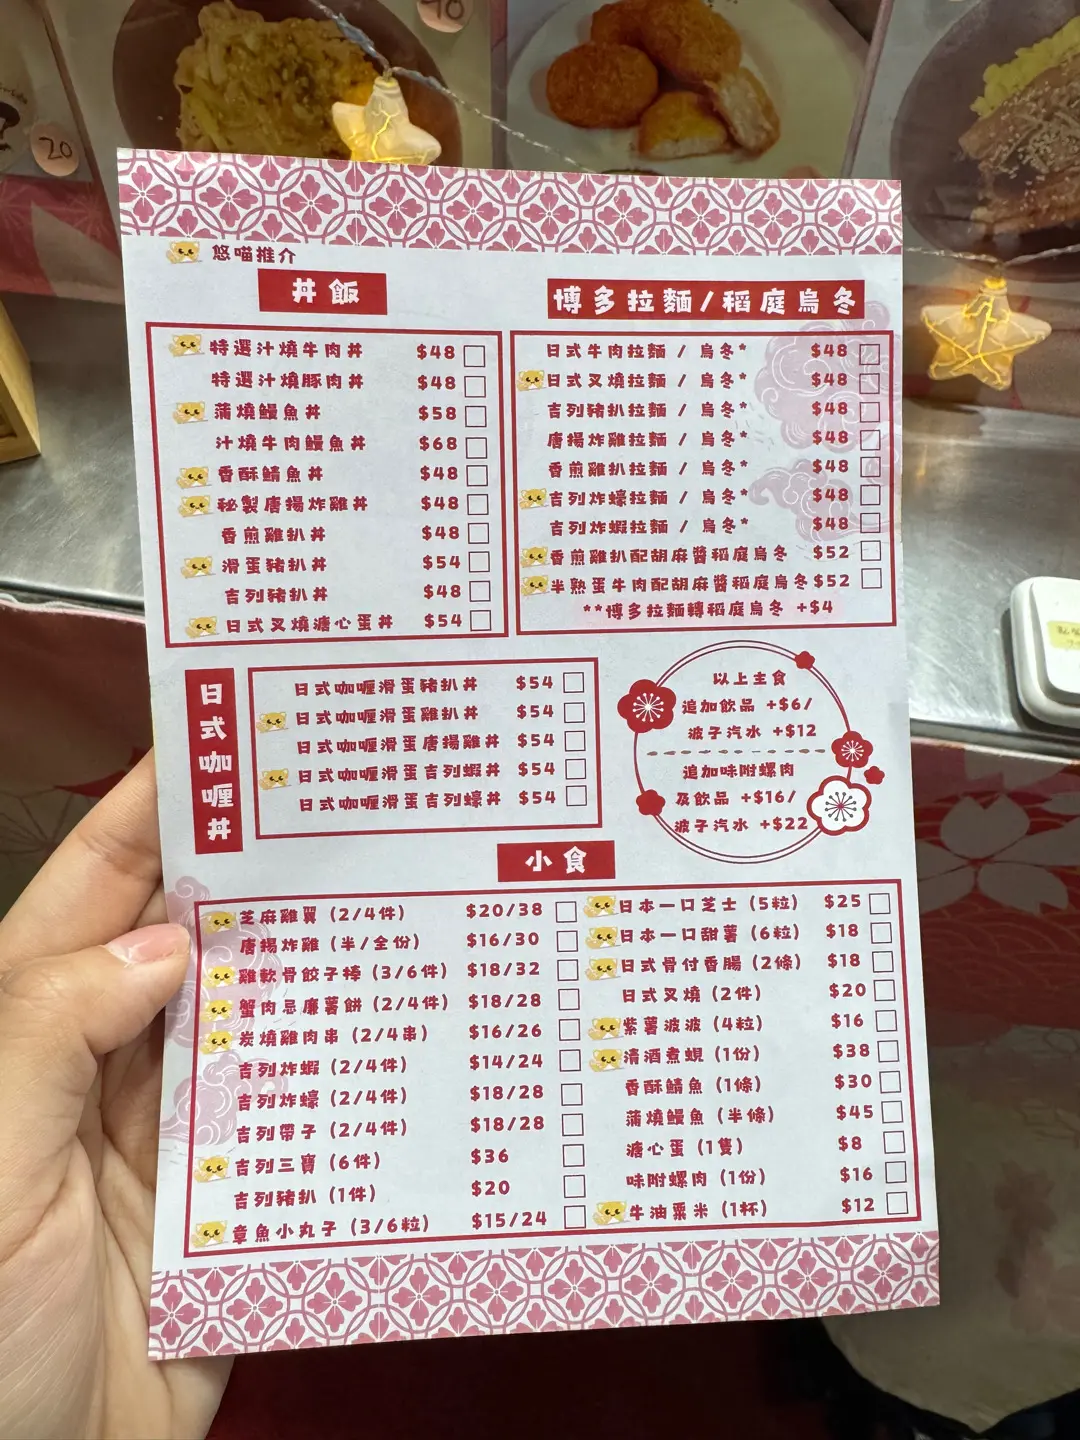 40
20
悠喵推介
丼飯
特選汁燒牛肉丼 $48
特選汁燒豚肉丼 $48
蒲燒鰻魚丼 $58
汁燒牛肉鰻魚丼 $68
香酥鯖魚丼 $48
秘製唐揚炸雞丼 $48
香煎雞扒丼 $48
滑蛋豬扒丼 $54
吉列豬扒丼 $48
日式叉燒溏心蛋丼 $54
博多拉麵/稻庭烏冬
日式牛肉拉麵 / 烏冬* $48
日式叉燒拉麵 / 烏冬* $48
吉列豬扒拉麵 / 烏冬* $48
唐揚炸雞拉麵 / 烏冬* $48
香煎雞扒拉麵 / 烏冬* $48
吉列炸蠔拉麵 / 烏冬* $48
吉列炸蝦拉麵 / 烏冬* $48
香煎雞扒配胡麻醬稻庭烏冬 $52
半熟蛋牛肉配胡麻醬稻庭烏冬 $52
**博多拉麵轉稻庭烏冬 +$4
日式咖喱丼
日式咖喱滑蛋豬扒丼 $54
日式咖喱滑蛋雞扒丼 $54
日式咖喱滑蛋唐揚雞丼 $54
日式咖喱滑蛋吉列蝦丼 $54
日式咖喱滑蛋吉列蠔丼 $54
以上主食
追加飲品 +$6/
波子汽水 +$12
追加味附螺肉
及飲品 +$16/
波子汽水 +$22
小食
芝麻雞翼 (2/4件) $20/38
唐揚炸雞 (半/全份) $16/30
雞軟骨餃子棒 (3/6件) $18/32
蟹肉忌廉薯餅 (2/4件) $18/28
炭燒雞肉串 (2/4串) $16/26
吉列炸蝦 (2/4件) $14/24
吉列炸蠔 (2/4件) $18/28
吉列帶子 (2/4件) $18/28
吉列三寶 (6件) $36
吉列豬扒 (1件) $20
章魚小丸子 (3/6粒) $15/24
日本一口芝士 (5粒) $25
日本一口甜薯 (6粒) $18
日式骨付香腸 (2條) $18
日式叉燒 (2件) $20
紫薯波波 (4粒) $16
清酒煮蜆 (1份) $38
香酥鯖魚 (1條) $30
蒲燒鰻魚 (半條) $45
溏心蛋 (1隻) $8
味附螺肉 (1份) $16
牛油粟米 (1杯) $12